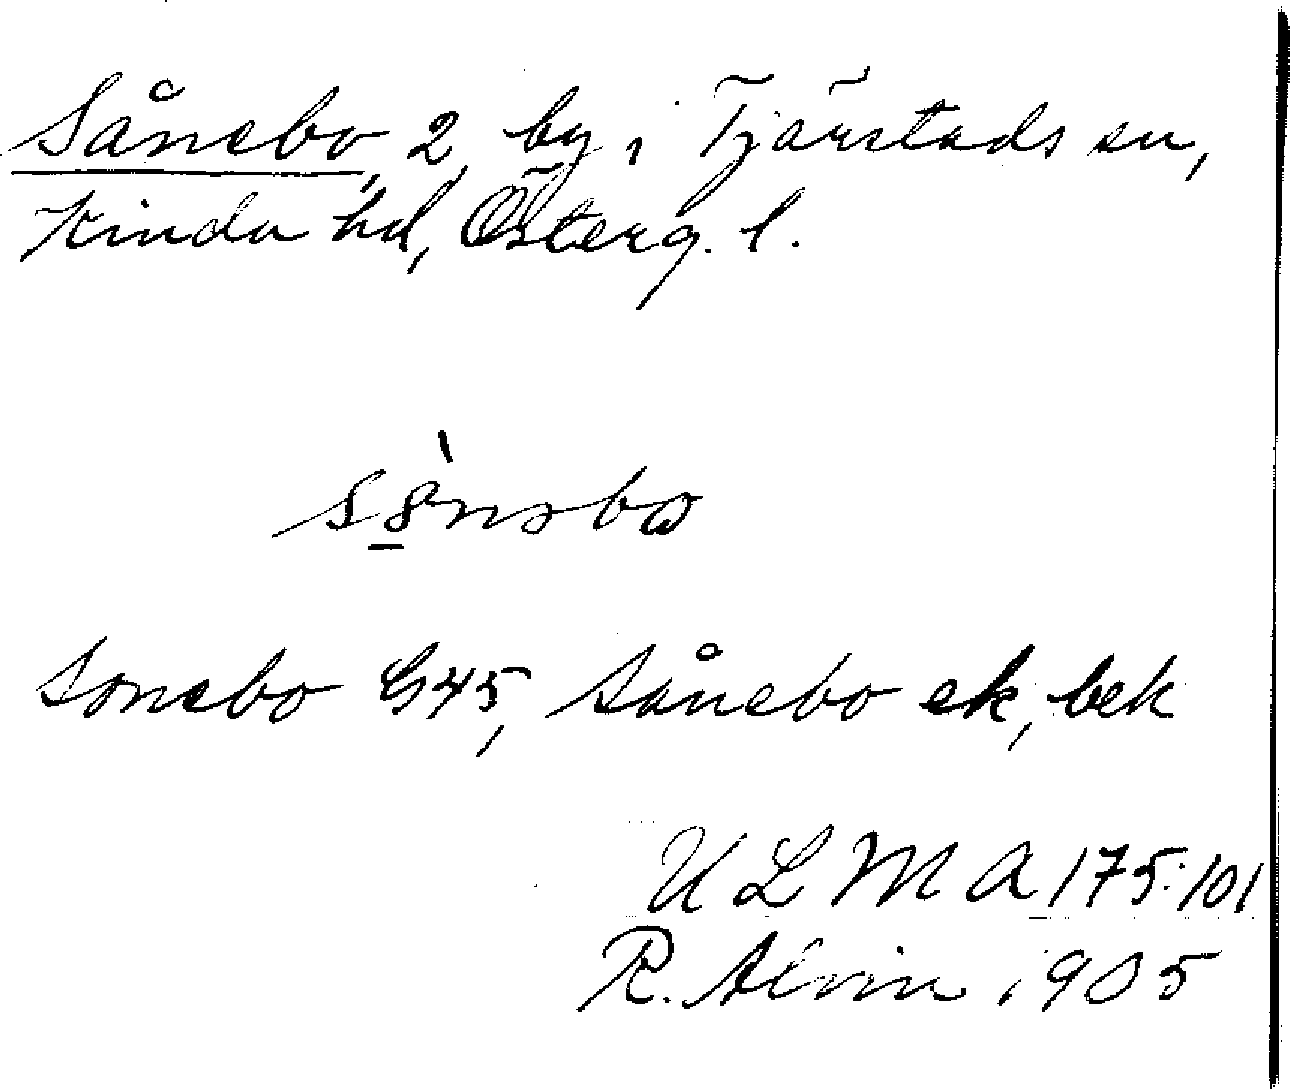 Sånebo, 2, by i Tjärstads sn,
Kinda hd, Österg. l.
Sonebo G45, Sånebo ek, bek
ULMA 175:101
R. Alvin 1905